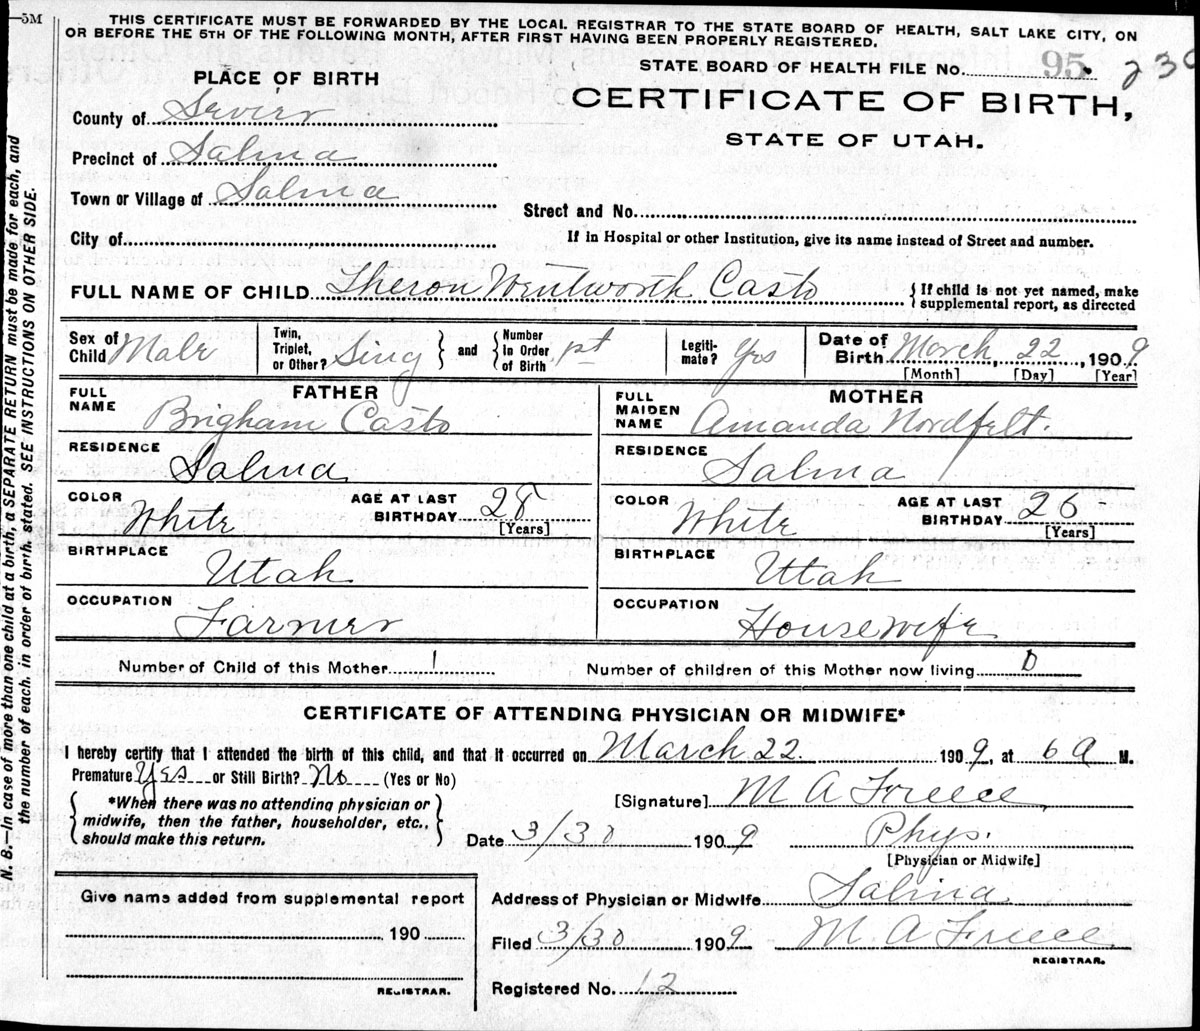 —5M
THIS CERTIFICATE MUST BE FORWARDED BY THE LOCAL REGISTRAR TO THE STATE BOARD OF HEALTH, SALT LAKE CITY, ON
OR BEFORE THE 5TH OF THE FOLLOWING MONTH, AFTER FIRST HAVING BEEN PROPERLY REGISTERED.
STATE BOARD OF HEALTH FILE No. 95. 230
PLACE OF BIRTH
CERTIFICATE OF BIRTH,
STATE OF UTAH.
County of Sevier
Precinct of Salina
Town or Village of Salina
Street and No.
City of
If in Hospital or other Institution, give its name instead of Street and number.
FULL NAME OF CHILD Theron Wentworth Casto { If child is not yet named, make
supplemental report, as directed
Sex of Child Male
Twin, Triplet, or Other? Sing } and { Number In Order of Birth pt
Legiti-mate? Yes
Date of Birth March, 22, 1909
[Month] [Day] [Year]
FATHER
FULL NAME Brigham Casto
RESIDENCE Salina
COLOR White AGE AT LAST BIRTHDAY 28
[Years]
BIRTHPLACE Utah
OCCUPATION Farmer
MOTHER
FULL MAIDEN NAME Amanda Nordfelt.
RESIDENCE Salina
COLOR White AGE AT LAST BIRTHDAY 26
[Years]
BIRTHPLACE Utah
OCCUPATION Housewife
Number of Child of this Mother 1 Number of children of this Mother now living 0
CERTIFICATE OF ATTENDING PHYSICIAN OR MIDWIFE*
I hereby certify that I attended the birth of this child, and that it occurred on March 22. 1909, at 6 A M.
Premature Yes or Still Birth? No (Yes or No)
{ *When there was no attending physician or
midwife, then the father, householder, etc.,
should make this return. }
[Signature] M A Freece
Date 3/30 1909 Phys.
[Physician or Midwife]
Address of Physician or Midwife Salina
Filed 3/30 1909 M. A Freece
REGISTRAR.
Registered No. 12
Give name added from supplemental report
190
REGISTRAR.
N. B.—In case of more than one child at a birth, a SEPARATE RETURN must be made for each, and
the number of each, in order of birth, stated. SEE INSTRUCTIONS ON OTHER SIDE.